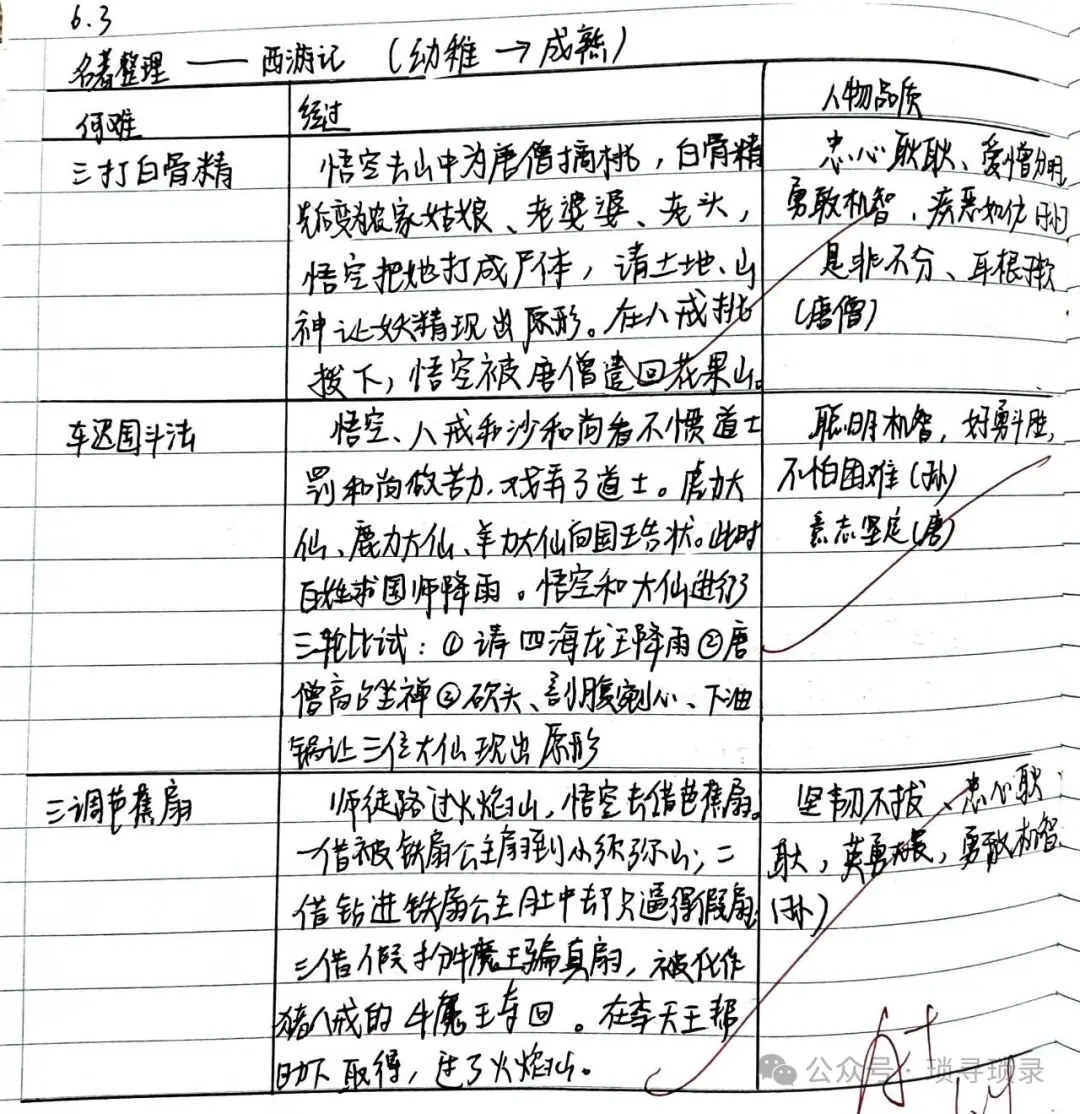 6.3
名著整理 —— 西游记 (幼稚 → 成熟)
何难 经过 人物品质
三打白骨精
悟空去山中为唐僧摘桃，白骨精
先后变为农家姑娘、老婆婆、老头，
悟空把她打成尸体，请土地、山
神让妖精现出原形。在八戒挑
拨下，悟空被唐僧遣回花果山。
忠心耿耿、爱憎分明
勇敢机智，疾恶如仇(孙)
是非不分、耳根软
(唐僧)
车迟国斗法
悟空、八戒和沙和尚看不惯道士
罚和尚做苦力，戏弄了道士。虎力大
仙、鹿力大仙、羊力大仙向国王告状。此时
百姓求国师降雨。悟空和大仙进行了
三轮比试：①请四海龙王降雨②唐
僧高台坐禅③砍头、剖腹剜心、下油
锅让三位大仙现出原形
聪明机智，好勇斗胜，
不怕困难(孙)
意志坚定(唐)
三调芭蕉扇
师徒路过火焰山，悟空去借芭蕉扇。
一借被铁扇公主扇到小须弥山；二
借钻进铁扇公主肚中却只逼得假扇；
三借假扮牛魔王骗真扇，被化作
猪八戒的牛魔王夺回。在李天王帮
助下取得，过了火焰山。
坚韧不拔、忠心耿
耿，英勇无畏，勇敢机智
(孙)
A+
公众号·琐寻琐录